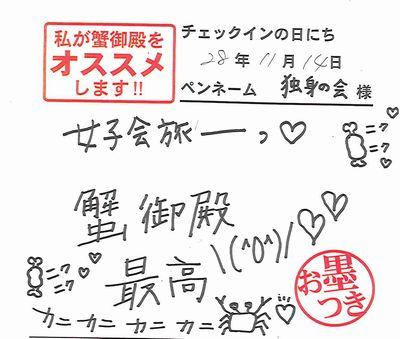 私が蟹御殿を
オススメ
します!!
チェックインの日にち
28年11月14日
ペンネーム 独身の会 様
女子会旅ーっ♡
ニク
ニク
蟹御殿
最高\(^o^)/♡♡
ニク
ニク
カニ カニ カニ カニ
お墨
つき